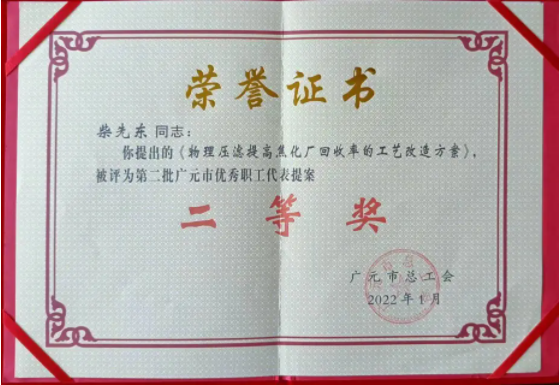 荣誉证书
柴先东 同志：
你提出的《物理压滤提高焦化厂回收率的工艺改造方案》，
被评为第二批广元市优秀职工代表提案
二等奖
广元市总工会
2022年1月